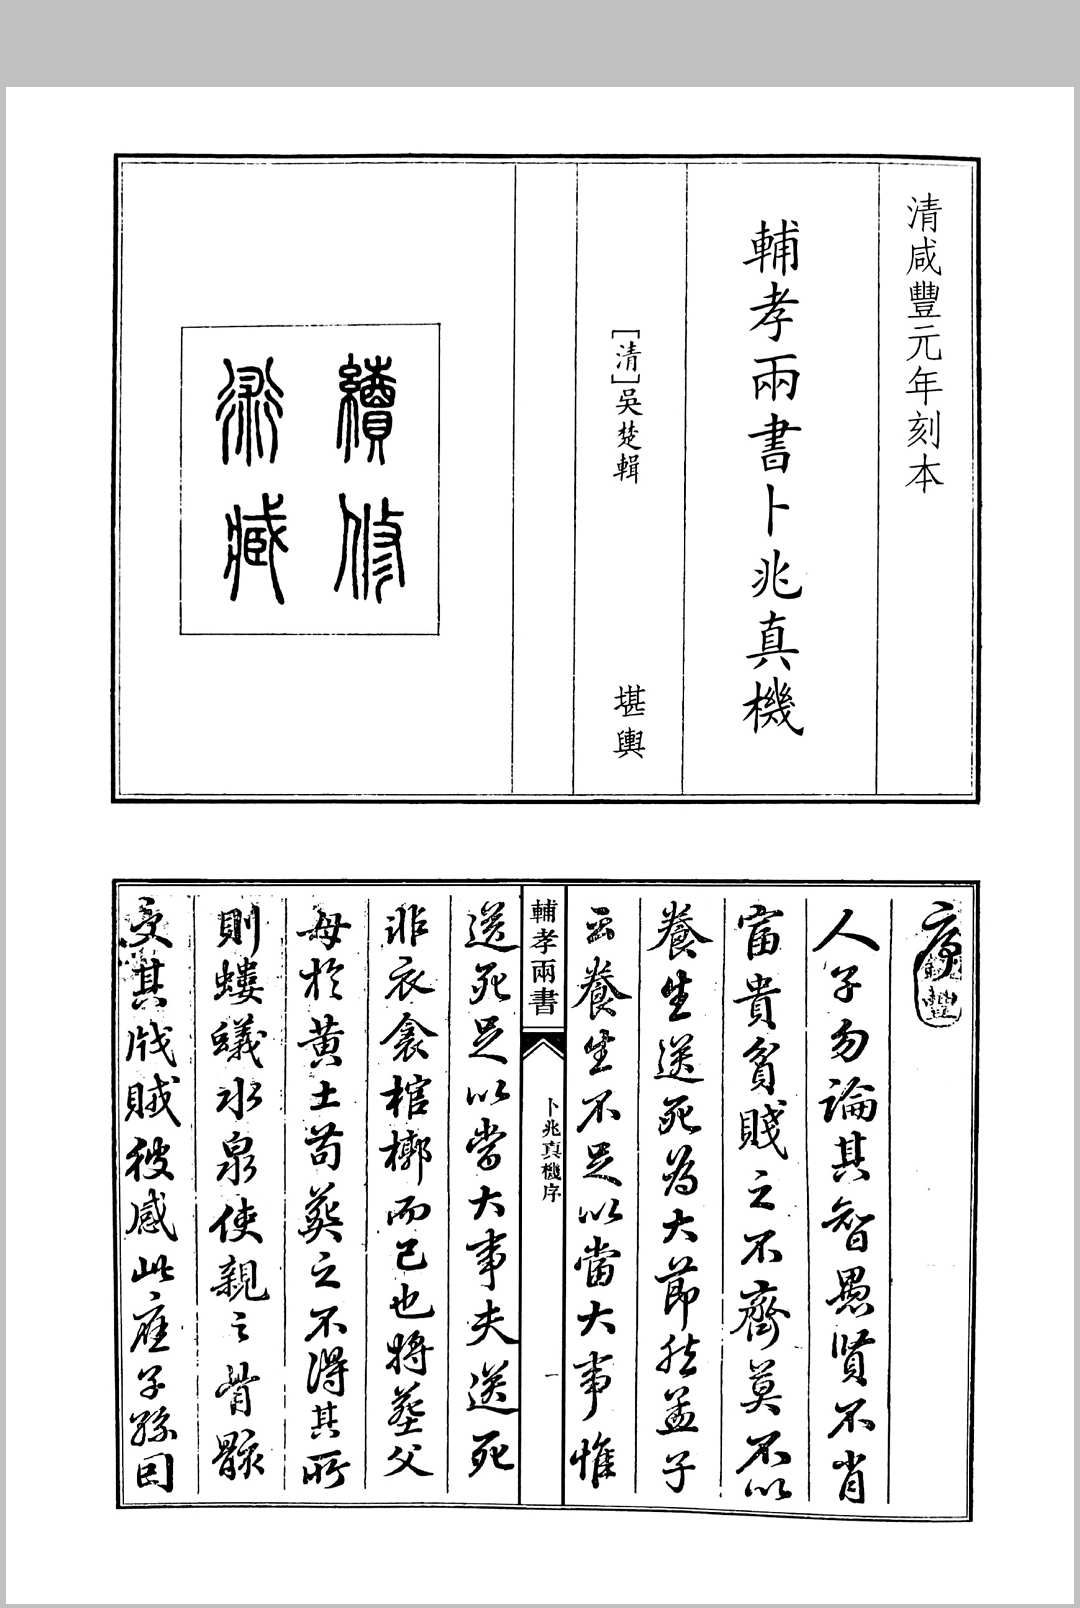 清咸豐元年刻本
輔孝兩書卜兆真機
[清]吳楚輯
堪輿
續修
序
人子勿論其智愚賢不肖
富貴貧賤之不齊莫不以
養生送死為大節然孟子
云養生不足以當大事惟
輔孝兩書
卜兆真機序
一
送死足以當大事夫送死
非衣衾棺槨而已也將葬父
母於黃土苟葬之不得其所
則螻蟻水泉使親之骨骸
受其戕賊彼感此應子孫因